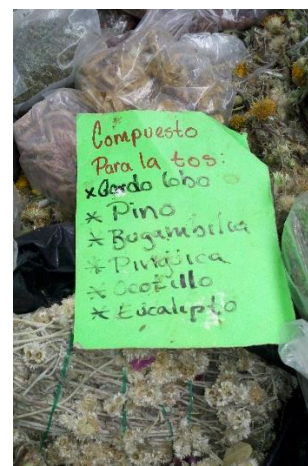 Compuesto
Para la tos:
* Gordo lobo
* Pino
* Bugambilia
* Pingüica
* Ocotillo
* Eucalipto